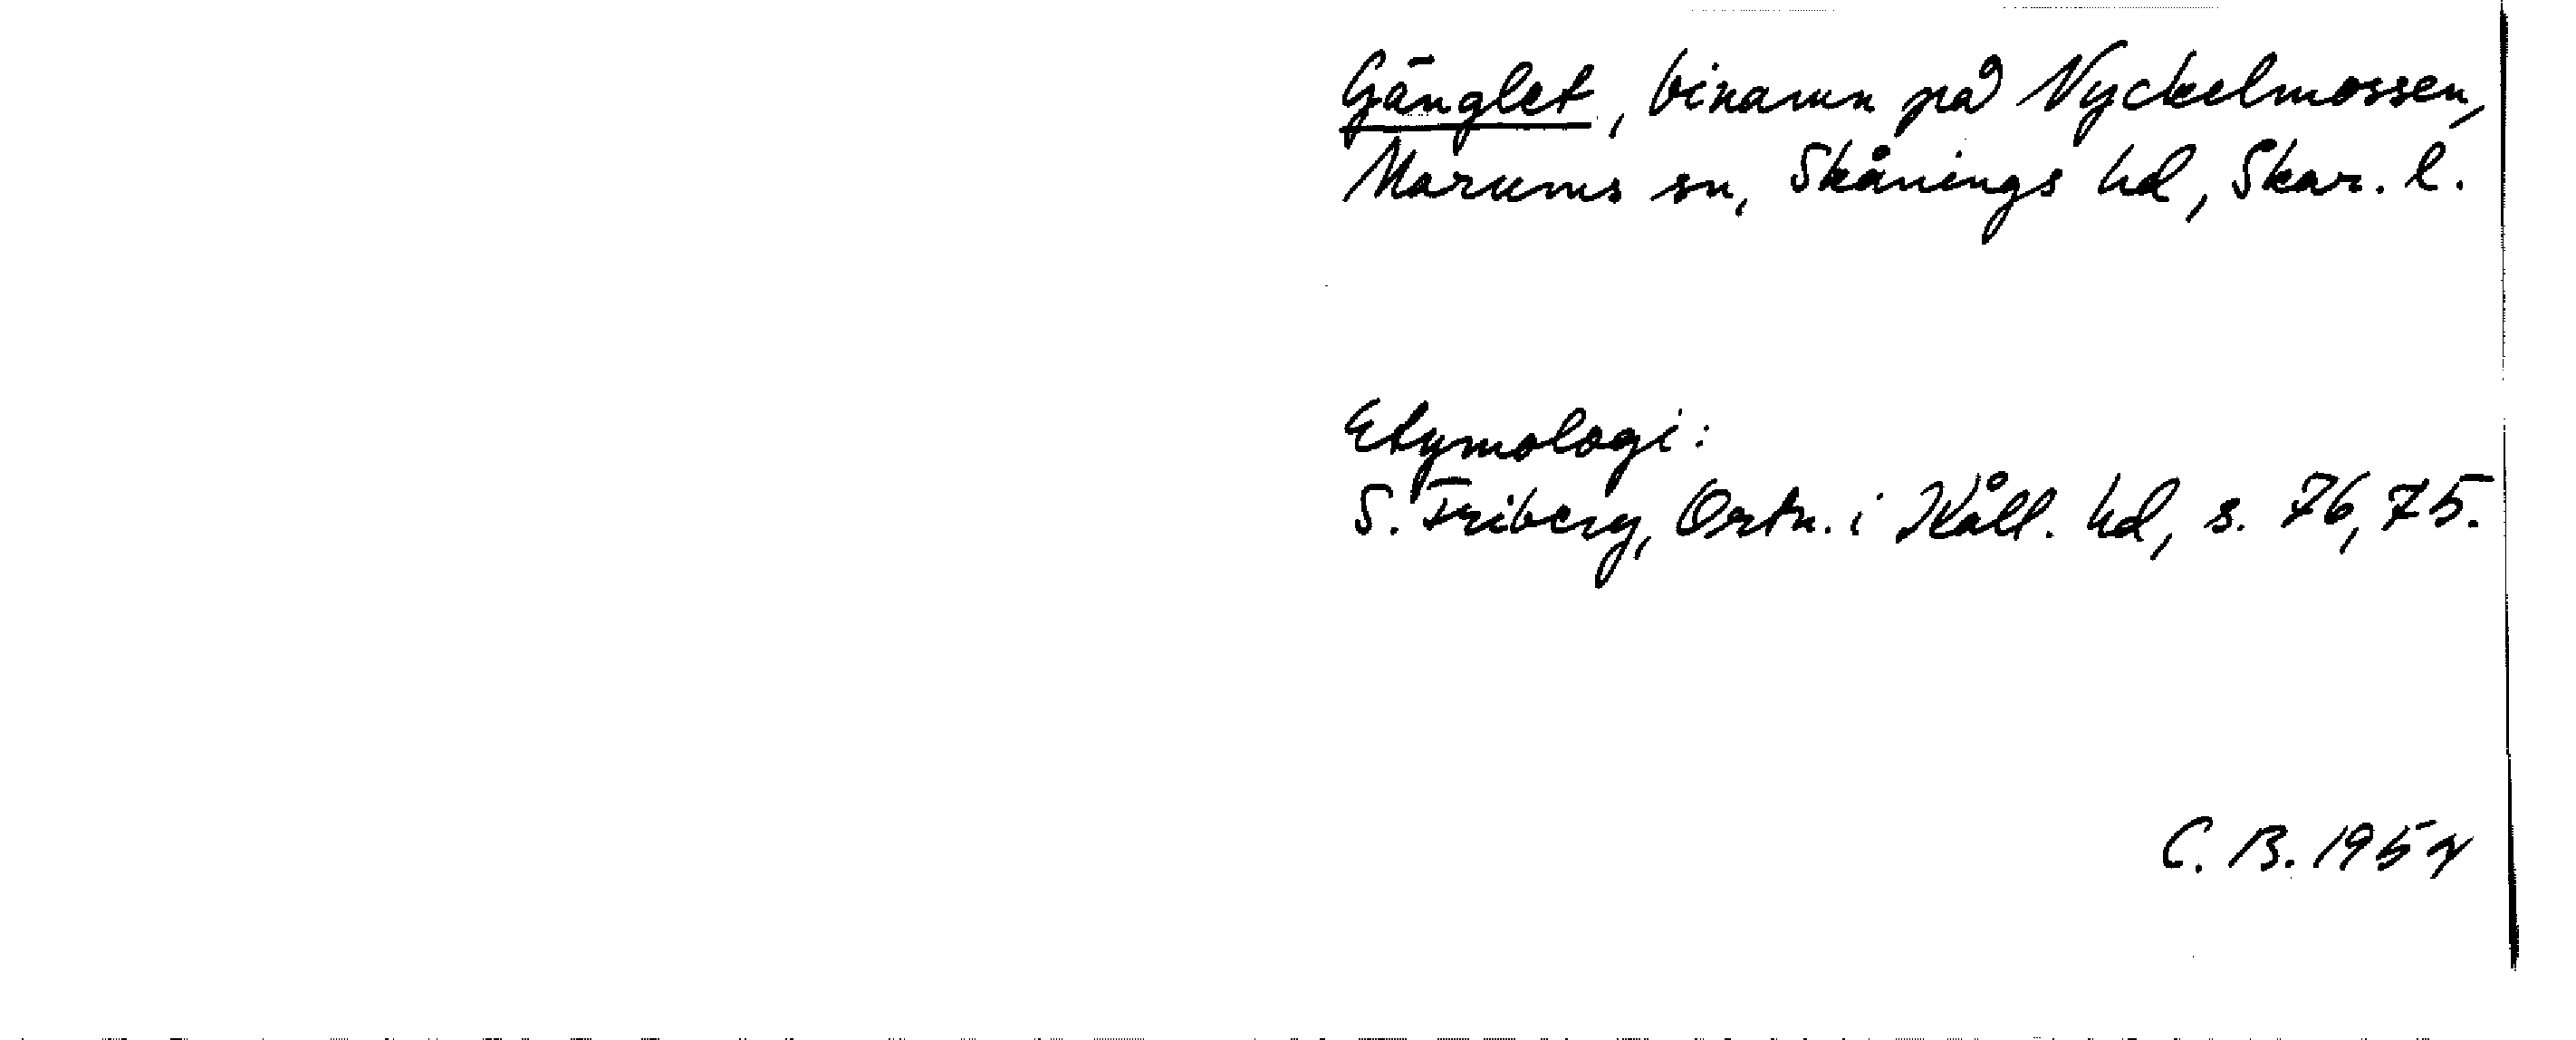 Gänglet, binamn på Nyckelmossen,
Marums sn, Skånings hd, Skar. l.
Etymologi:
S. Friberg, Ortn. i Kåll. hd, s. 76, 75.
C. B. 1957